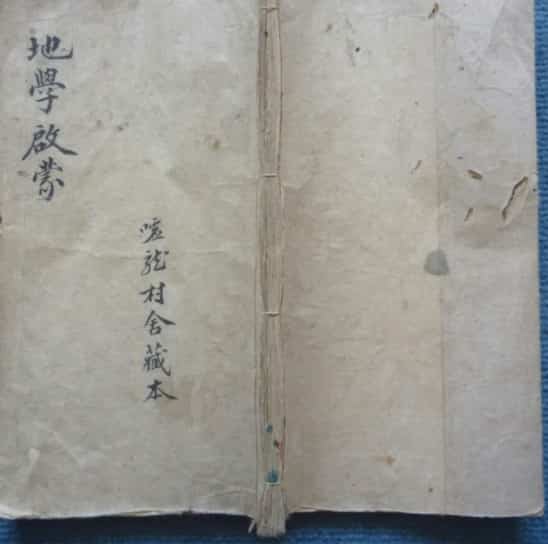 地學啟蒙
龍村舍藏本